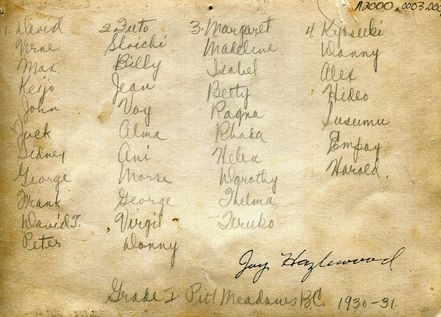 A2000.0003.00
1. David
Verne
Max
Keijo
John
Jack
Sidney
George
Frank
David T.
Peter
2. Juto
Shoichi
Billy
Jean
Voy
Alma
Ani
Morse
George
Virgil
Donny
3. Margaret
Madeline
Isabel
Betty
Ragna
Phada
Helen
Dorothy
Thelma
Teruko
4. Kyosuki
Danny
Alex
Hideo
Susumu
Empay
Harold.
Jay Hazlewood
Grade I Pitt Meadows BC 1930-31.